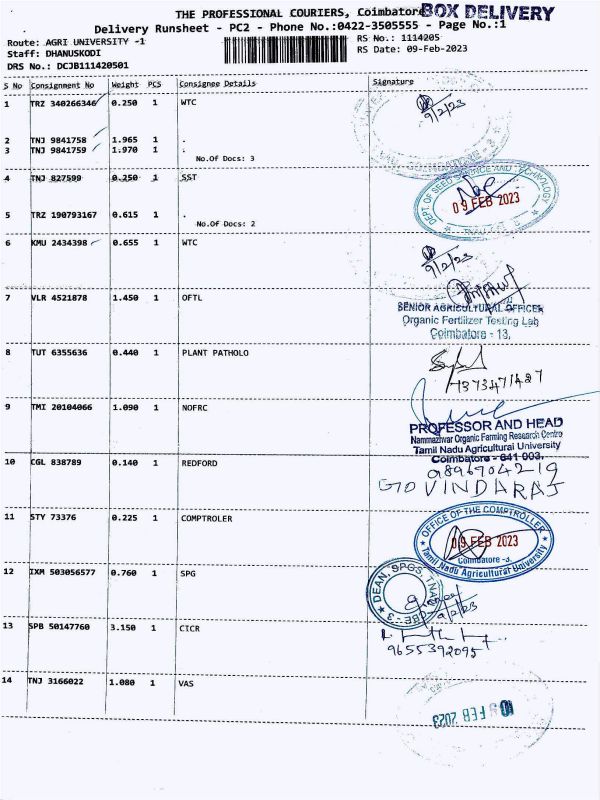 THE PROFESSIONAL COURIERS, Coimbatore BOX DELIVERY
Delivery Runsheet - PC2 - Phone No.:0422-3505555 - Page No.:1
Route: AGRI UNIVERSITY -1
RS No.: 1114205
Staff: DHANUSKODI
RS Date: 09-Feb-2023
DRS No.: DCJB111420501
S No Consignment No Weight PCS Consignee Details Signature
1 TRZ 340266346 0.250 1 WTC
9/2/23
2 TNJ 9841758 1.965 1 .
3 TNJ 9841759 1.970 1 .
No.Of Docs: 3
4 TNJ 827599 0.250 1 SST
DEPT. OF SEED SCIENCE AND TECHNOLOGY
09 FEB 2023
5 TRZ 190793167 0.615 1 .
No.Of Docs: 2
6 KMU 2434398 0.655 1 WTC
9/2/23
7 VLR 4521878 1.450 1 OFTL
SENIOR AGRICULTURAL OFFICER
Organic Fertilizer Testing Lab
Coimbatore - 13.
8 TUT 6355636 0.440 1 PLANT PATHOLO
7373471427
9 TMI 20104066 1.090 1 NOFRC
PROFESSOR AND HEAD
Nammazhvar Organic Farming Research Centre
Tamil Nadu Agricultural University
Coimbatore - 641 003.
10 CGL 838789 0.140 1 REDFORD
9896904219
GOVINDARAJ
11 STY 73376 0.225 1 COMPTROLER
OFFICE OF THE COMPTROLLER
09 FEB 2023
Coimbatore -3.
Tamil Nadu Agricultural University
12 IXM 503056577 0.760 1 SPG
DEAN, SPGS, TNAU
9/2/23
13 SPB 50147760 3.150 1 CTCR
9655392095
14 TNJ 3166022 1.080 1 VAS
10 FEB 2023